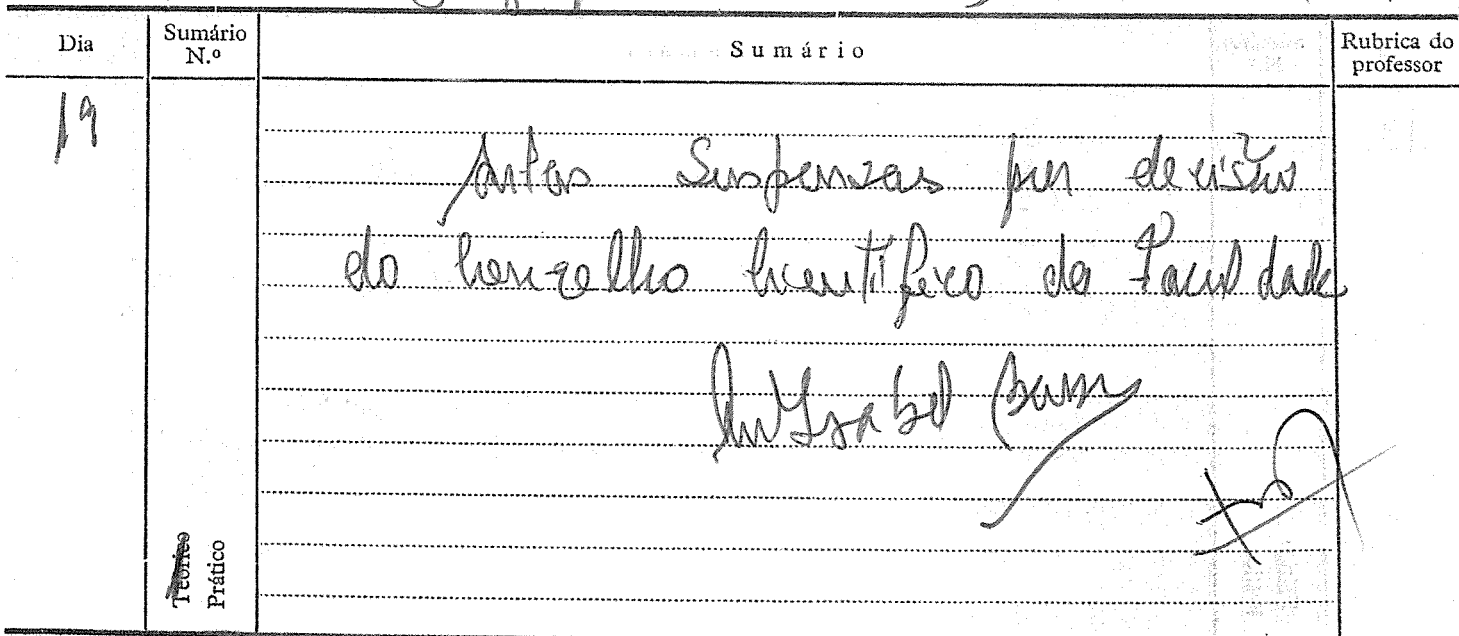 Dia Sumário N.º Sumário Rubrica do professor
19
Aulas Suspensas por decisão
do Conselho Científico da Faculdade
Isabel
Teórico
Prático